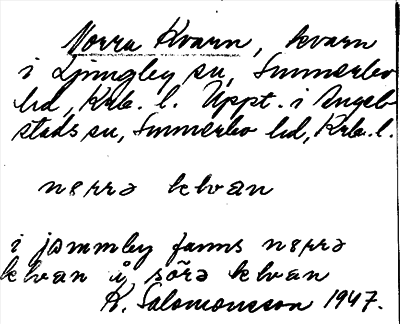 Norra Kvarn, kvarn
i Ljungby sn, Sunnerbo
hd, Krb. l. Uppt. i Angel-
stads sn, Sunnerbo hd, Krb. l.
nɵrrə kvan
i jammby fanns nɵrrə
kvan å sörə kvan
K. Salomonsson 1947.